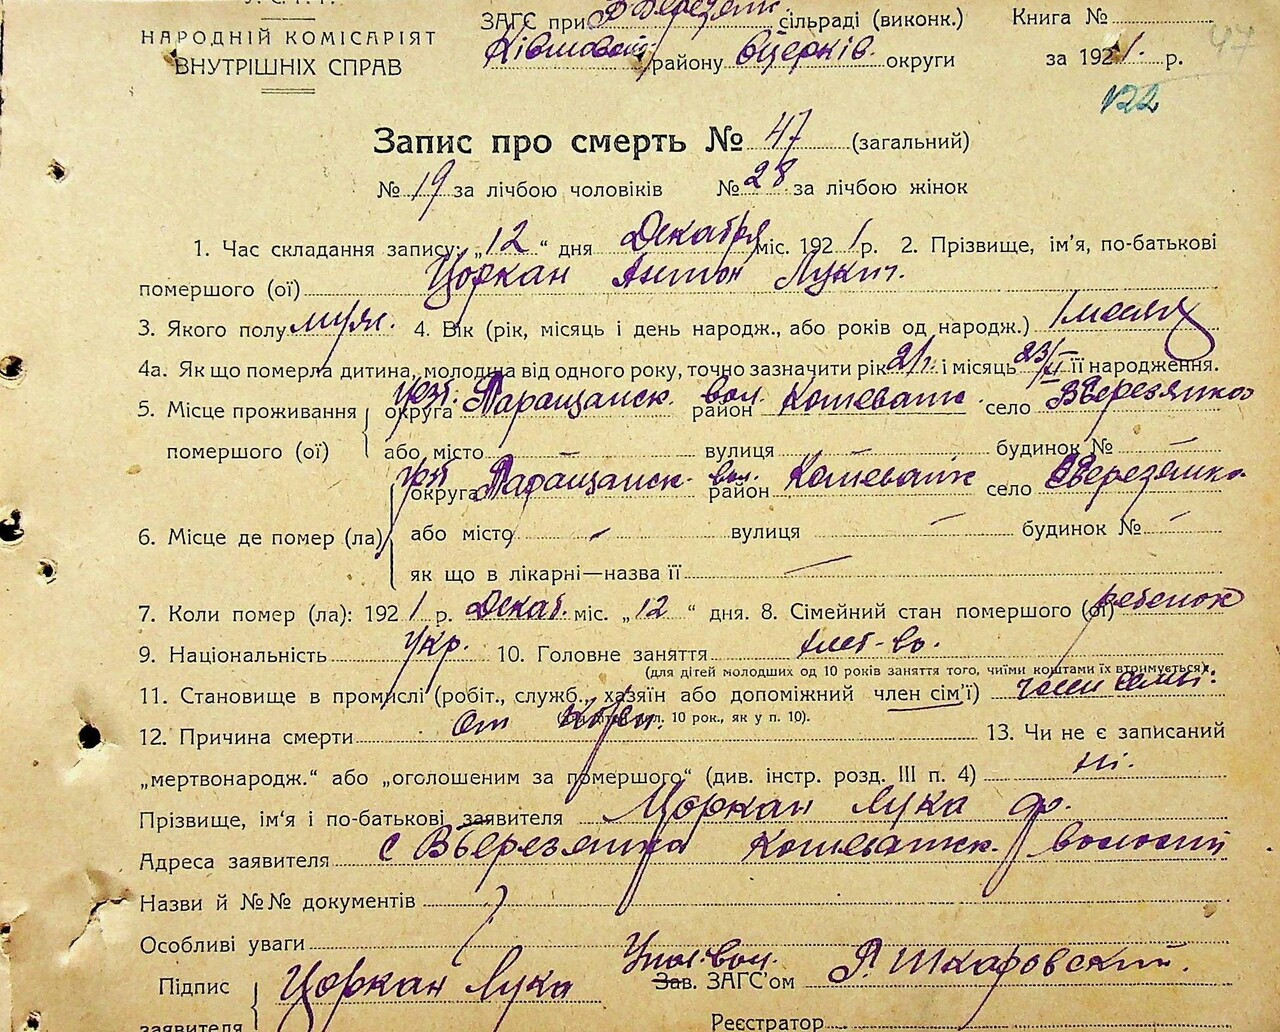 У.С.Р.Р.
НАРОДНІЙ КОМІСАРІЯТ
ВНУТРІШНІХ СПРАВ
ЗАГС при В Березянк. сільраді (виконк.)
району Бцерків. округи
Книга №
за 1921 р.
47
122
Запис про смерть № 47 (загальний)
№ 19 за лічбою чоловіків № 28 за лічбою жінок
1. Час складання запису: „12“ дня Декабря міс. 1921 р. 2. Прізвище, ім’я, по-батькові
помершого (ої) Цоркан Антон Лукич.
3. Якого полу муж. 4. Вік (рік, місяць і день народж., або років од народж.) 1 месяц
4а. Як що померла дитина, молодша від одного року, точно зазначити рік 21 г. і місяць 23/XI її народження.
5. Місце проживання округа уезд. Таращанск. район вол. Кошеватск. село ВБерезянко
помершого (ої) або місто вулиця – будинок № –
округа уезд Таращанск. район вол. Кошеватск село ВБерезянко.
6. Місце де помер (ла) або місто – вулиця – будинок № –
як що в лікарні—назва її –
7. Коли помер (ла): 1921 р. Декаб. міс. „12“ дня. 8. Сімейний стан помершого (ої) ребенок
9. Національність Укр. 10. Головне заняття
(для дітей молодших од 10 років заняття того, чиїми коштами їх втримується)
11. Становище в промислі (робіт., служб., хазяїн або допоміжний член сім’ї) член семьи.
(для дітей мол. 10 рок., як у п. 10).
12. Причина смерти от 13. Чи не є записаний
„мертвонародж.“ або „оголошеним за помершого“ (див. інстр. розд. III п. 4) ні.
Прізвище, ім‘я і по-батькові заявителя Цоркан Лука Ф.
Адреса заявителя с ВБерезянка Кошеватск. волости
Назви й №№ документів
Особливі уваги
Підпис Цоркан Лука Зав. ЗАГС’ом Р. Шкаровский.
заявителя Реєстратор